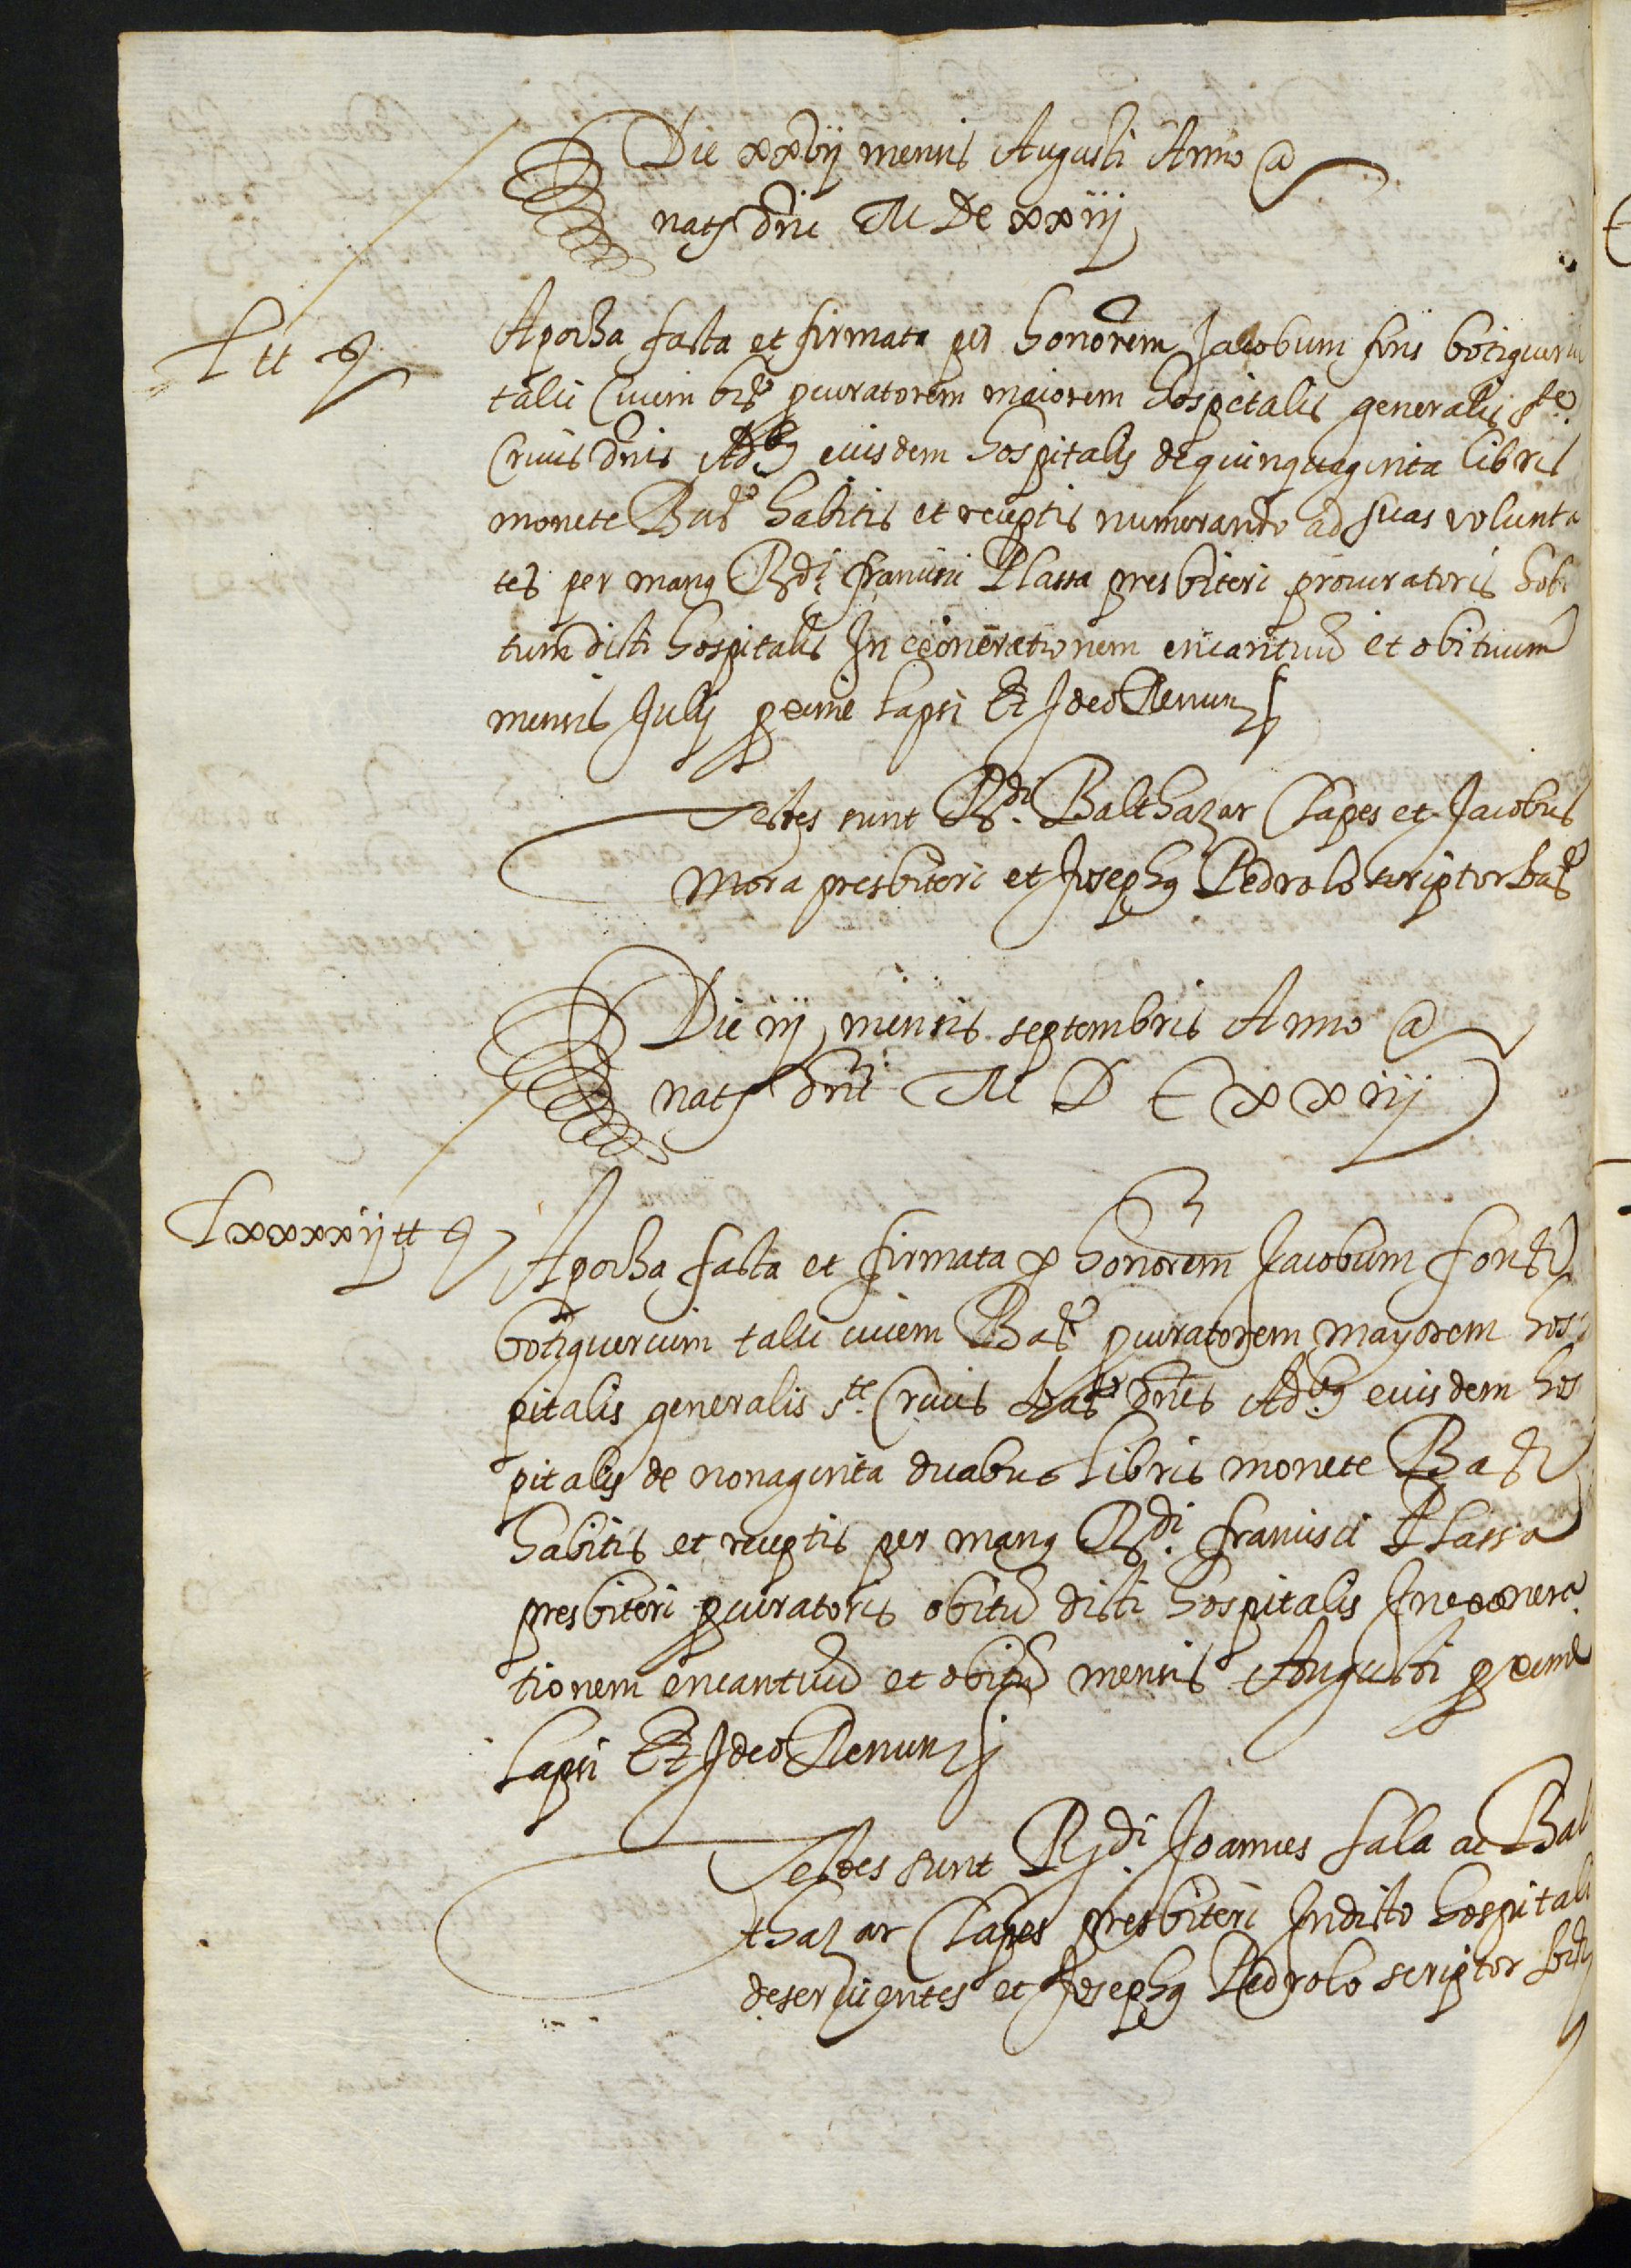 Die xxvij mensis Augusti Anno a
natt dni M DC xxiij
L tt s
Apocha facta et firmata per honorem Jacobum fons botiguerium
talii Civem bar procuratorem maiorem hospitalis generalis ste
Crucis dnis Adbs eiusdem hospitalis de quinquaginta libris
monete Bar habitis et receptis numerando ad suas volunta
tes per manus Rdi francisci Plassa presbiteri procuratoris hobi
tum dicti hospitalis In exonerationem encantuu et obituum
mensis Julij proxime lapsi Et Ideo Renun
Testes sunt Rdi Balthazar Clapes et Jacobus
Mora presbiteri et Josephus Pedrolo scriptor bar
Die iij mensis septembris Anno a
natt dni M D C xxiij
Lxxxxij tt s
Apocha facta et firmata p honorem Jacobum font
botiguerium talii civem Bar procuratorem mayorem hos
pitalis generalis ste Crucis bar dnis Adbs eiusdem hos
pitalis de nonaginta duabus libris monete Bar
habitis et receptis per manus Rdi francisci Plassa
presbiteri procuratoris obituu dicti hospitalis In exonera
tionem encantuu et obituu mensis Augusti proxime
lapsi Et Ideo Renun
Testes sunt Rdi Joannes Sala ac Bal
thazar Clapes presbiteri In dicto hospitali
deservientes et Josephus Pedrolo scriptor bar